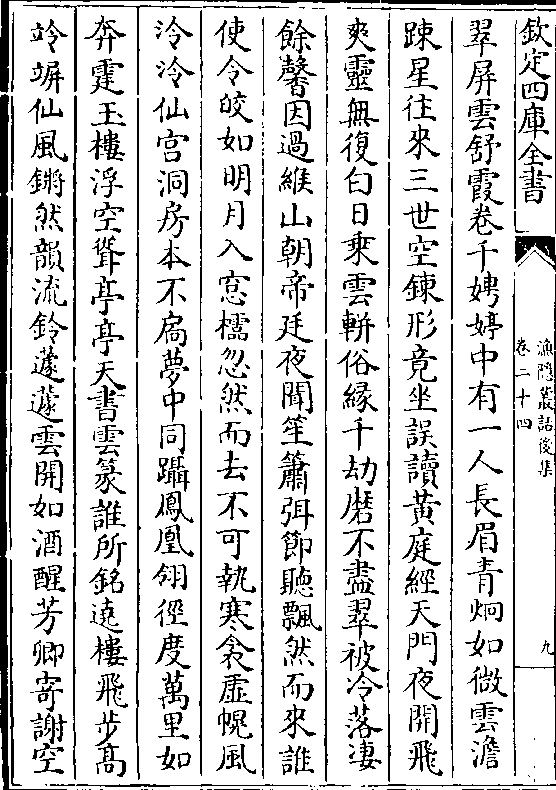 欽定四庫全書
漁隱叢話後集
卷二十四
九
翠屏雲舒霞卷千娉婷中有一人長眉青炯如微雲澹
踈星往來三世空鍊形竟坐誤讀黃庭經天門夜開飛
爽靈無復白日乘雲軿俗縁千劫磨不盡翠被冷落凄
餘馨因過緱山朝帝廷夜聞笙簫弭節聽飄然而來誰
使令皎如明月入窓櫺忽然而去不可執寒衾虛幌風
泠泠仙宮洞房本不扃夢中同躡鳳凰翎徑度萬里如
奔霆玉樓浮空聳亭亭天書雲篆誰所銘遶樓飛步高
竛竮仙風鏘然韻流鈴蘧蘧雲開如酒醒芳卿寄謝空